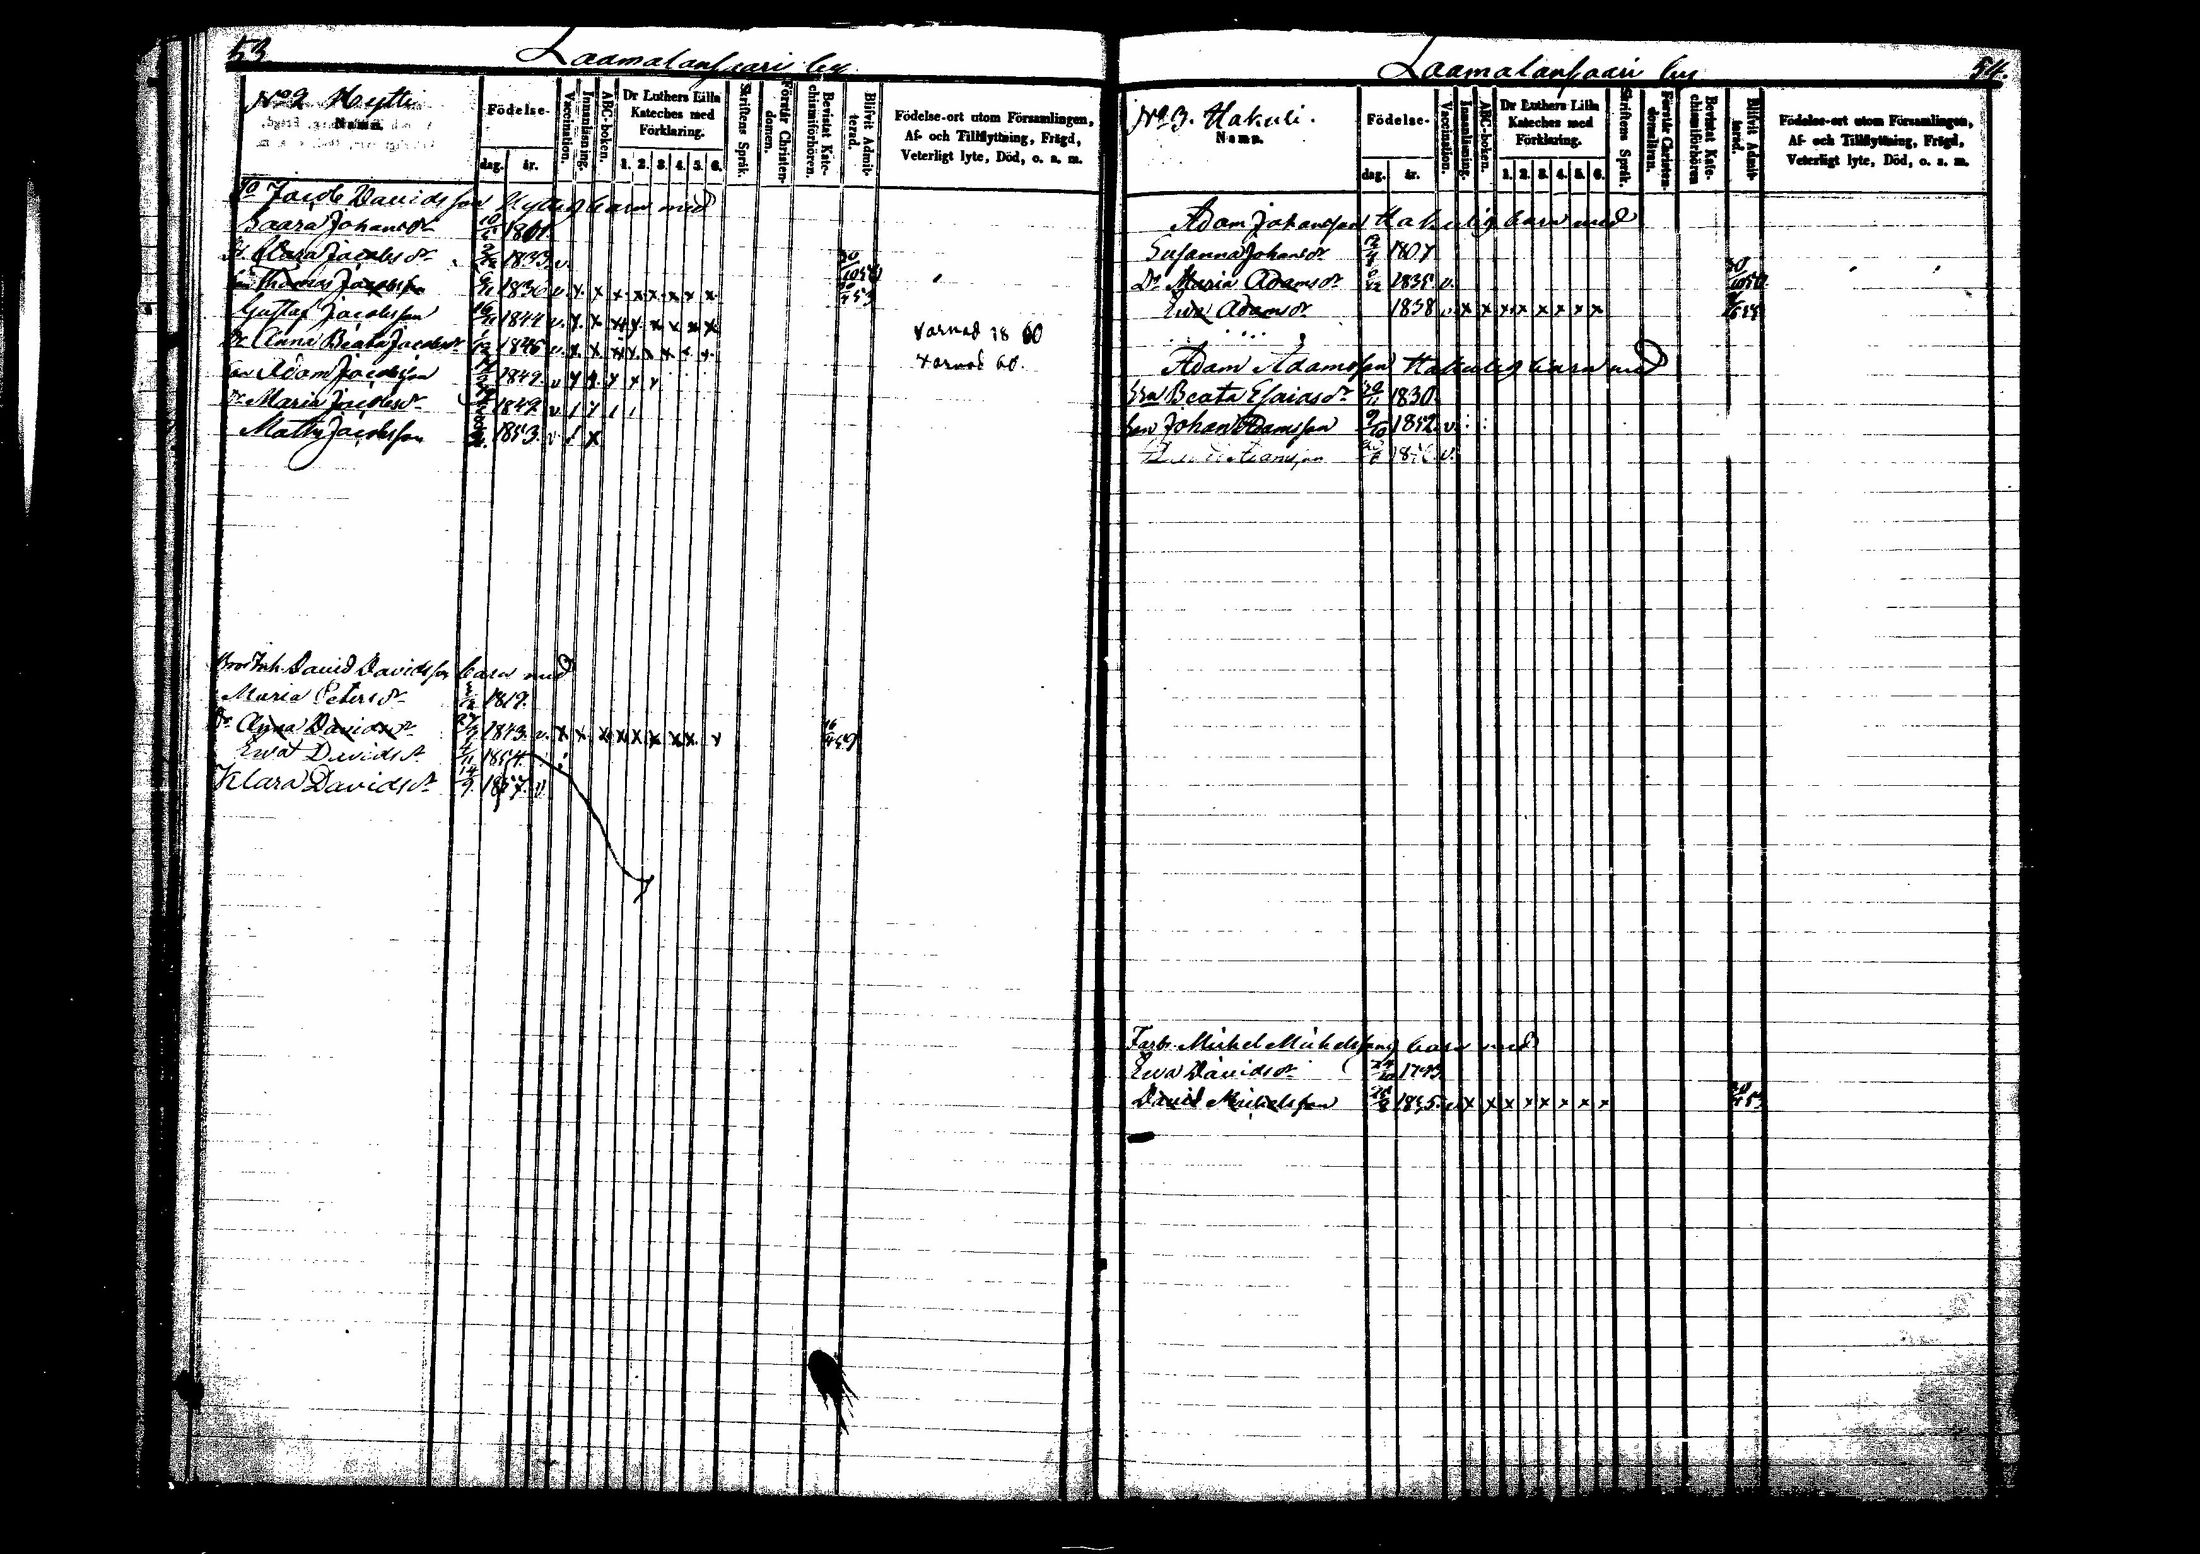 53
Laamalansaari by
No 2 Hytti
Namn.
Födelse-
dag. år.
Vaccination.
Innanläsning.
ABC-boken.
Dr Luthers Lilla Kateches med Förklaring.
1. 2. 3. 4. 5. 6.
Skriftens Språk.
Förstår Christendomen.
Bevistat Katechismiförhören.
Blifvit Admitterad.
Födelse-ort utom Församlingen,
Af- och Tillflyttning, Frägd,
Veterligt lyte, Död, o. s. m.
Jacob Davidsson Hyttig barn med
Saara Johansdr 1801
Dr Clara Jacobsdr 1833 v.
Son Thomas Jacobsson 1836 v. x x x x x x x x
Gustaf Jacobsson 1844 v. x x x x x x x x
varnad 18 60
Dr Anna Beata Jacobsdr 1846 v. x x x x x x
varnad 60.
Son Adam Jacobsson 1849 v
Dr Maria Jacobsdr 1849 v
Matts Jacobsson 1853 v x
Brod Inh. David Davidsson barn med
Maria Petersdr 1819.
Dr Anna Davidsdr 27 1843 v. x x x x x x x x x
Ewa Davidsdr 1854.
Klara Davidsdr 14/9 1857. v
Laamalansaari by
54.
No 3. Hakuli.
Namn.
Födelse-
dag. år.
Vaccination.
Innanläsning.
ABC-boken.
Dr Luthers Lilla Kateches med Förklaring.
1. 2. 3. 4. 5. 6.
Skriftens Språk.
Förstår Christendomsläran.
Bevistat Katechismiförhören
Blifvit Admitterad.
Födelse-ort utom Församlingen,
Af- och Tillflyttning, Frägd,
Veterligt lyte, Död, o. s. m.
Adam Johansson Hakulig barn med
Susanna Johansdr 1807
Dr Maria Adamsdr 1835 v.
Ewa Adamsdr 1838 v. x x x x x x x x
Adam Adamsson Hakulig barn med
Beata Esaiasdr 1830
Son Johan Adamsson 9/10 1852 v.
Michel Michelsson barn med
Ewa Davidsdr
David Michelsson 1835 x x x x x x x x